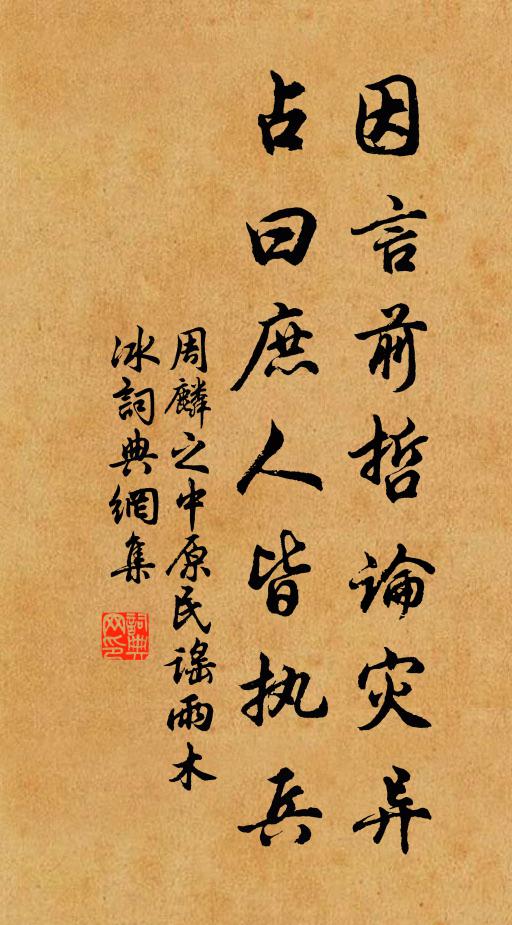 因言前哲论灾异
占曰庶人皆执兵
周麟之中原民谣雨木
冰词典网集
词典
网印